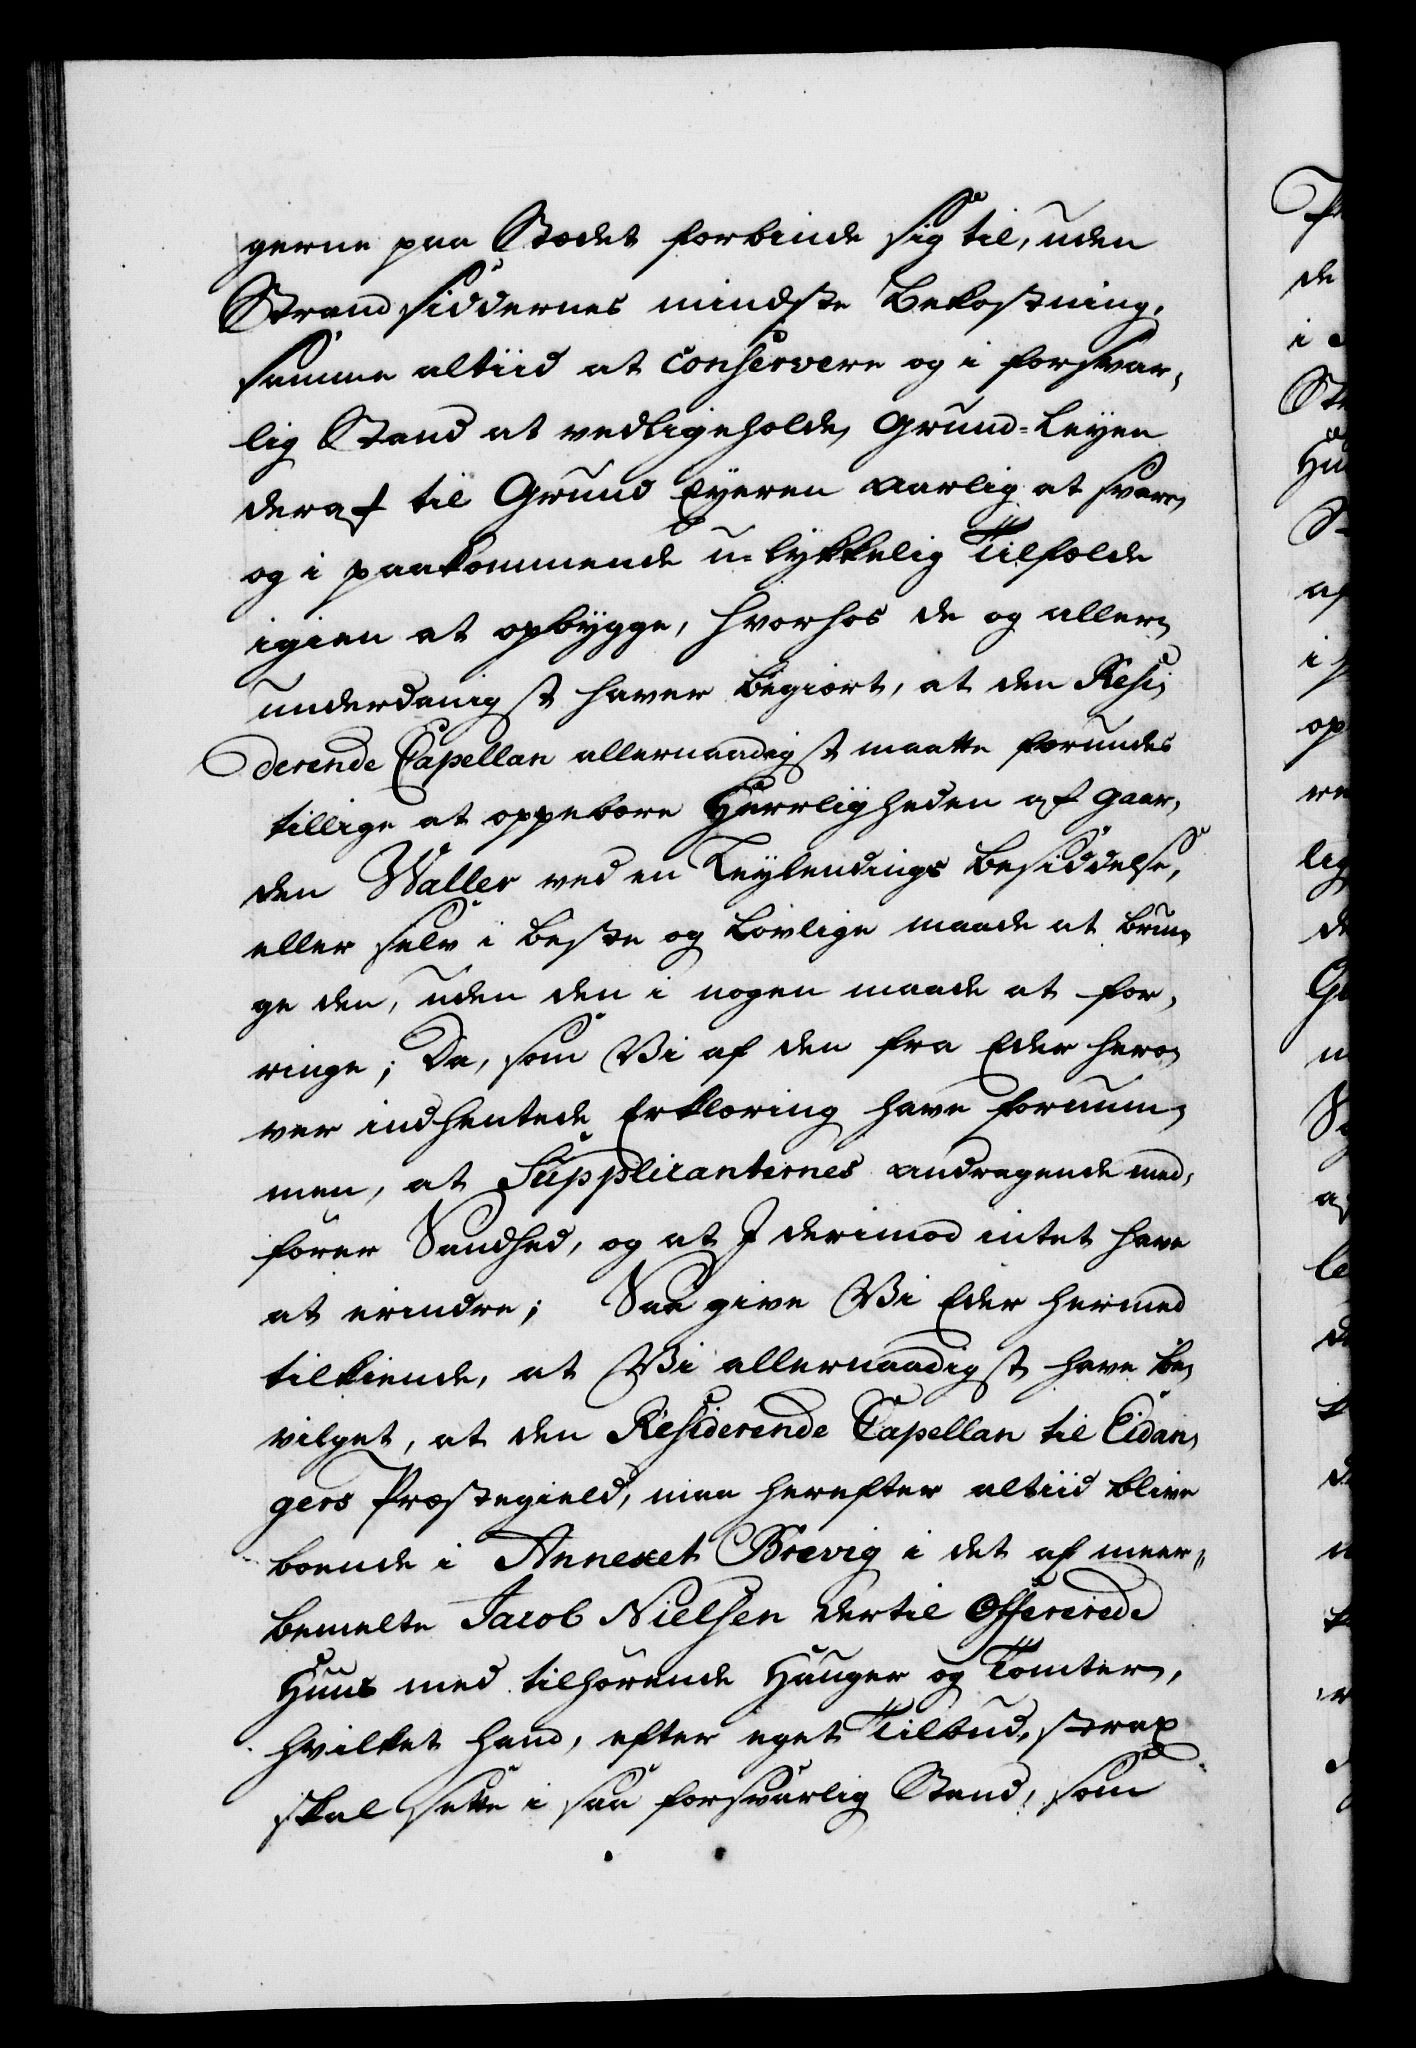 gerne paa Stædet forbinde sig til, uden
Strandsiddernes mindste Bekostning,
samme altiid at conservere og i forsvar,
lig Stand at vedligeholde, Grund-Leyen
deraf til Grund Eyeren aarlig at svare,
og i paakommende u-lykkelig Tilfælde
igien at opbygge, hvorhos de og aller,
underdanigst haver begiært, at den Resi,
derende Capellan allernaadigst maatte forundes
tillige at oppebære Herrligheden af Gaar,
den Waller ved en Leylendings Besiddelse,
eller selv i beste og lovlige maade at bru,
ge den, uden den i nogen maade at for,
ringe; Da, som Vi af den fra Eder hero,
ver indhentede Erklæring have fornum,
men, at Supplicanternes andragende med,
fører Sandhed, og at I derimod intet have
at erindre; Saa give Vi Eder hermed
tilkiende, at Vi allernaadigst have be,
vilget, at den Residerende Capellan til Eidan,
gers Præstegield, maa herefter altiid blive
boende i Annexet Brevig i det af meer,
bemelte Jacob Nielsen dertil Offererede
Huus med tilhørende Hauger og Tomter,
hvilket hand, efter eget Tilbud, strax
skal sætte i saa forsvarlig Stand, som